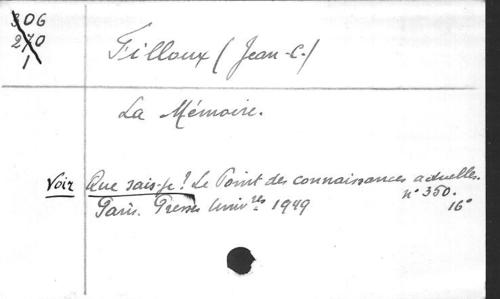 306
270
1
Filloux (Jean-C.)
La Mémoire.
Voir Que sais-je? Le Point des connaissances actuelles.
n° 350.
Paris. Presses Univ.res 1949
16°